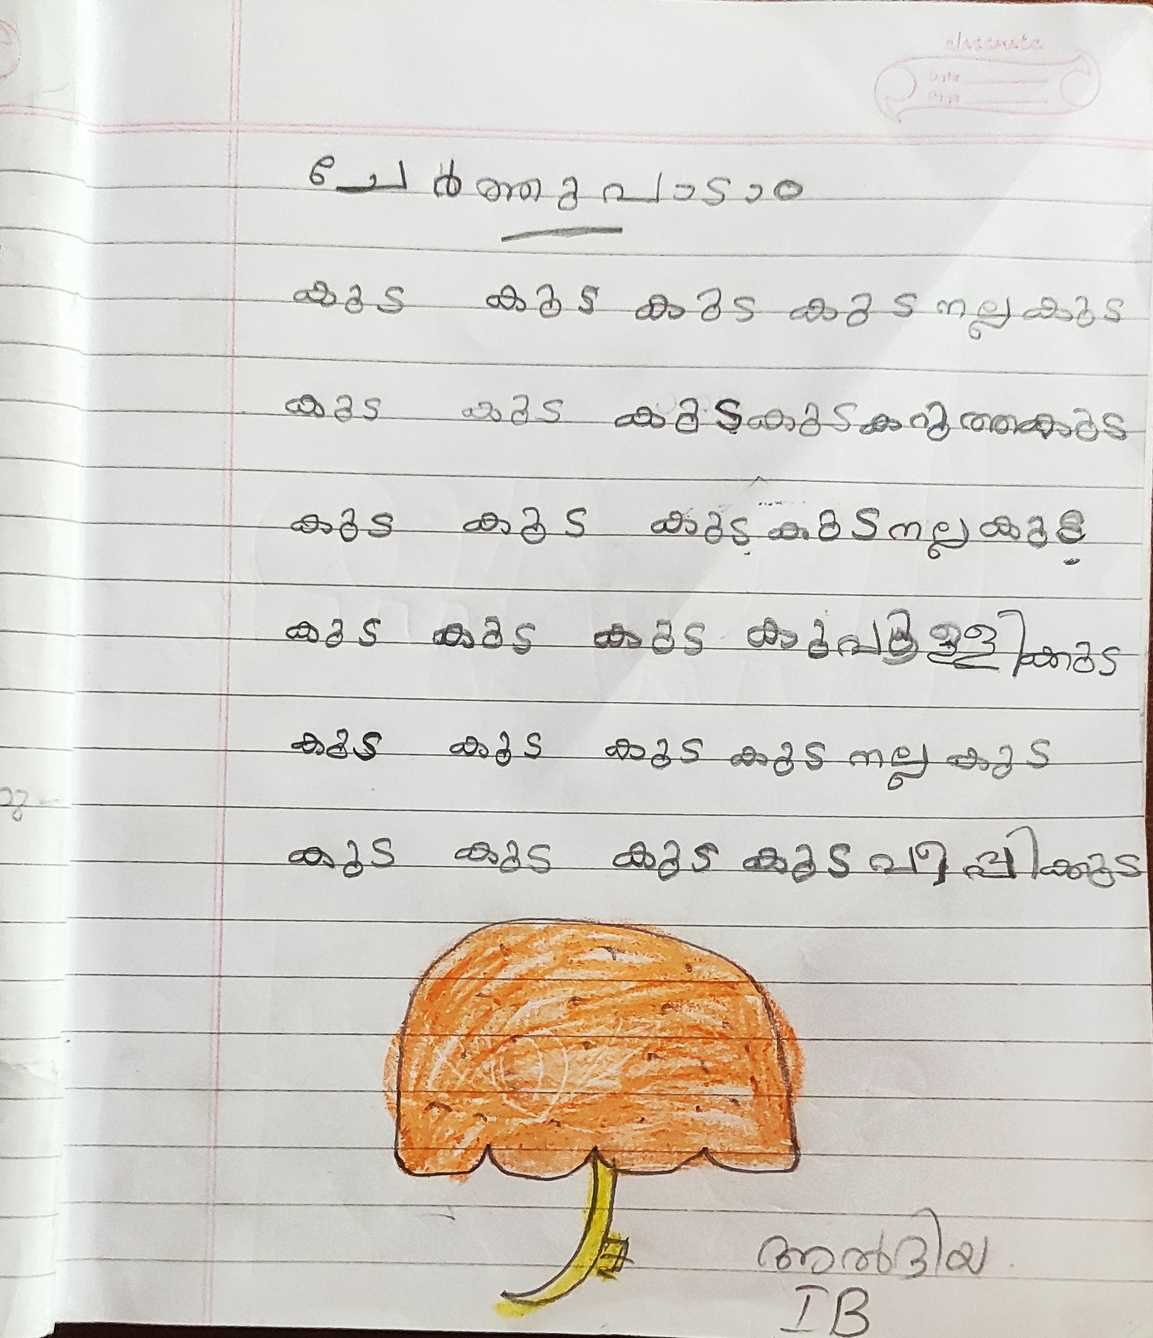 classmate
Date
Page
ചേർത്തുപാടാം
കുട കുട കുട കുട നല്ല കുട
കുട കുട കുട കുട കറുത്ത കുട
കുട കുട കുട കുട നല്ല കുട
കുട കുട കുട കുപുള്ളിക്കുട
കുട കുട കുട കുട നല്ല കുട
കുട കുട കുട കുട പീപ്പിക്കുട
അൽദിയ
I B